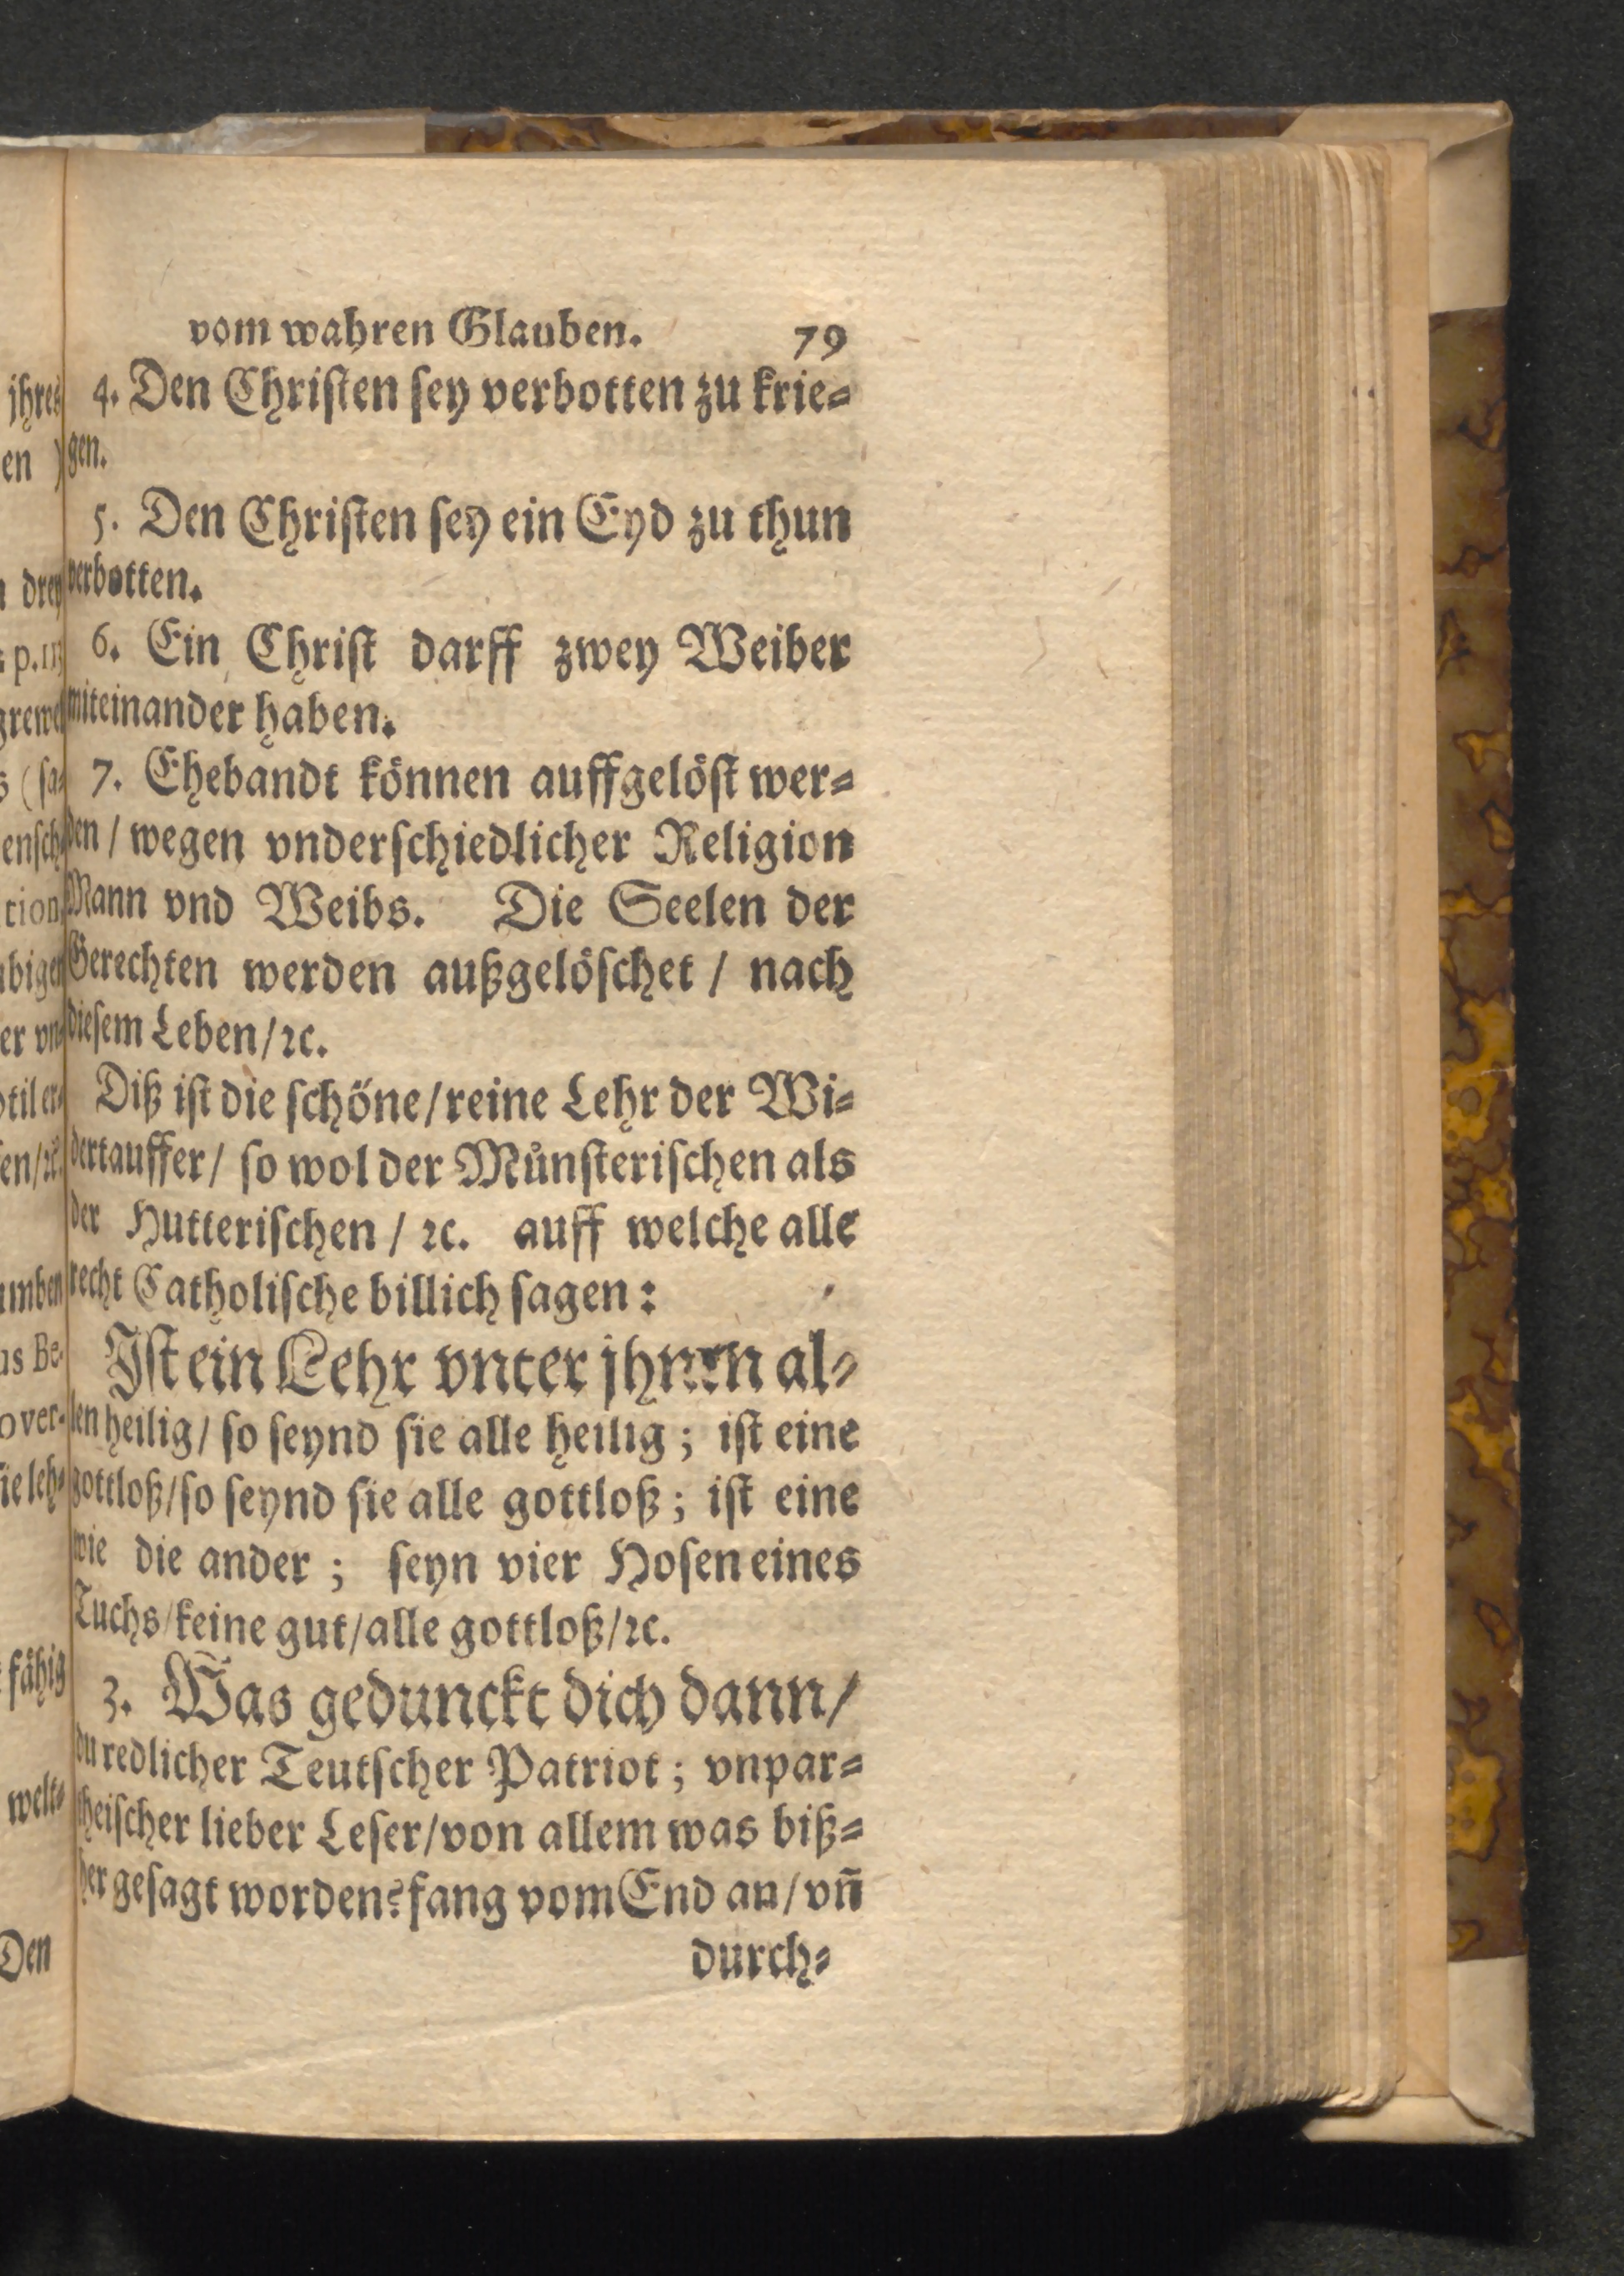 vom wahren Glauben. 79
4. Den Chriſten ſey verbotten zu krie-
gen.
5. Den Chriſten ſey ein Eyd zu thun
verbotten.
6. Ein Chriſt darff zwey Weiber
miteinander haben.
7. Ehebandt können auffgelöſt wer-
den / wegen vnderſchiedlicher Religion
Mann vnd Weibs. Die Seelen der
Gerechten werden außgelöſchet / nach
dieſem Leben / ꝛc.
Diß iſt die ſchöne / reine Lehr der Wi-
dertauffer / ſo wol der Muͤnſteriſchen als
der Hutteriſchen / ꝛc. auff welche alle
recht Catholiſche billich ſagen:
Iſt ein Lehr vnter jhnen al-
len heilig / ſo ſeynd ſie alle heilig; iſt eine
gottloß / ſo ſeynd ſie alle gottloß; iſt eine
wie die ander; ſeyn vier Hoſen eines
Tuchs / keine gut / alle gottloß / ꝛc.
3. Was gedunckt dich dann /
du redlicher Teutſcher Patriot; vnpar-
theiſcher lieber Leſer / von allem was biß-
her geſagt worden? fang vom End an / vñ
durch-